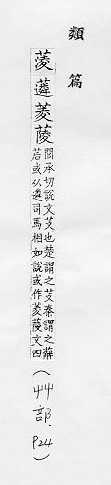 類篇
蔆䔖菱蔆閭承切說文芰也楚謂之芰秦謂之薢
茩或从遴司馬相如說或作菱蔆文四
(艸部.P24)